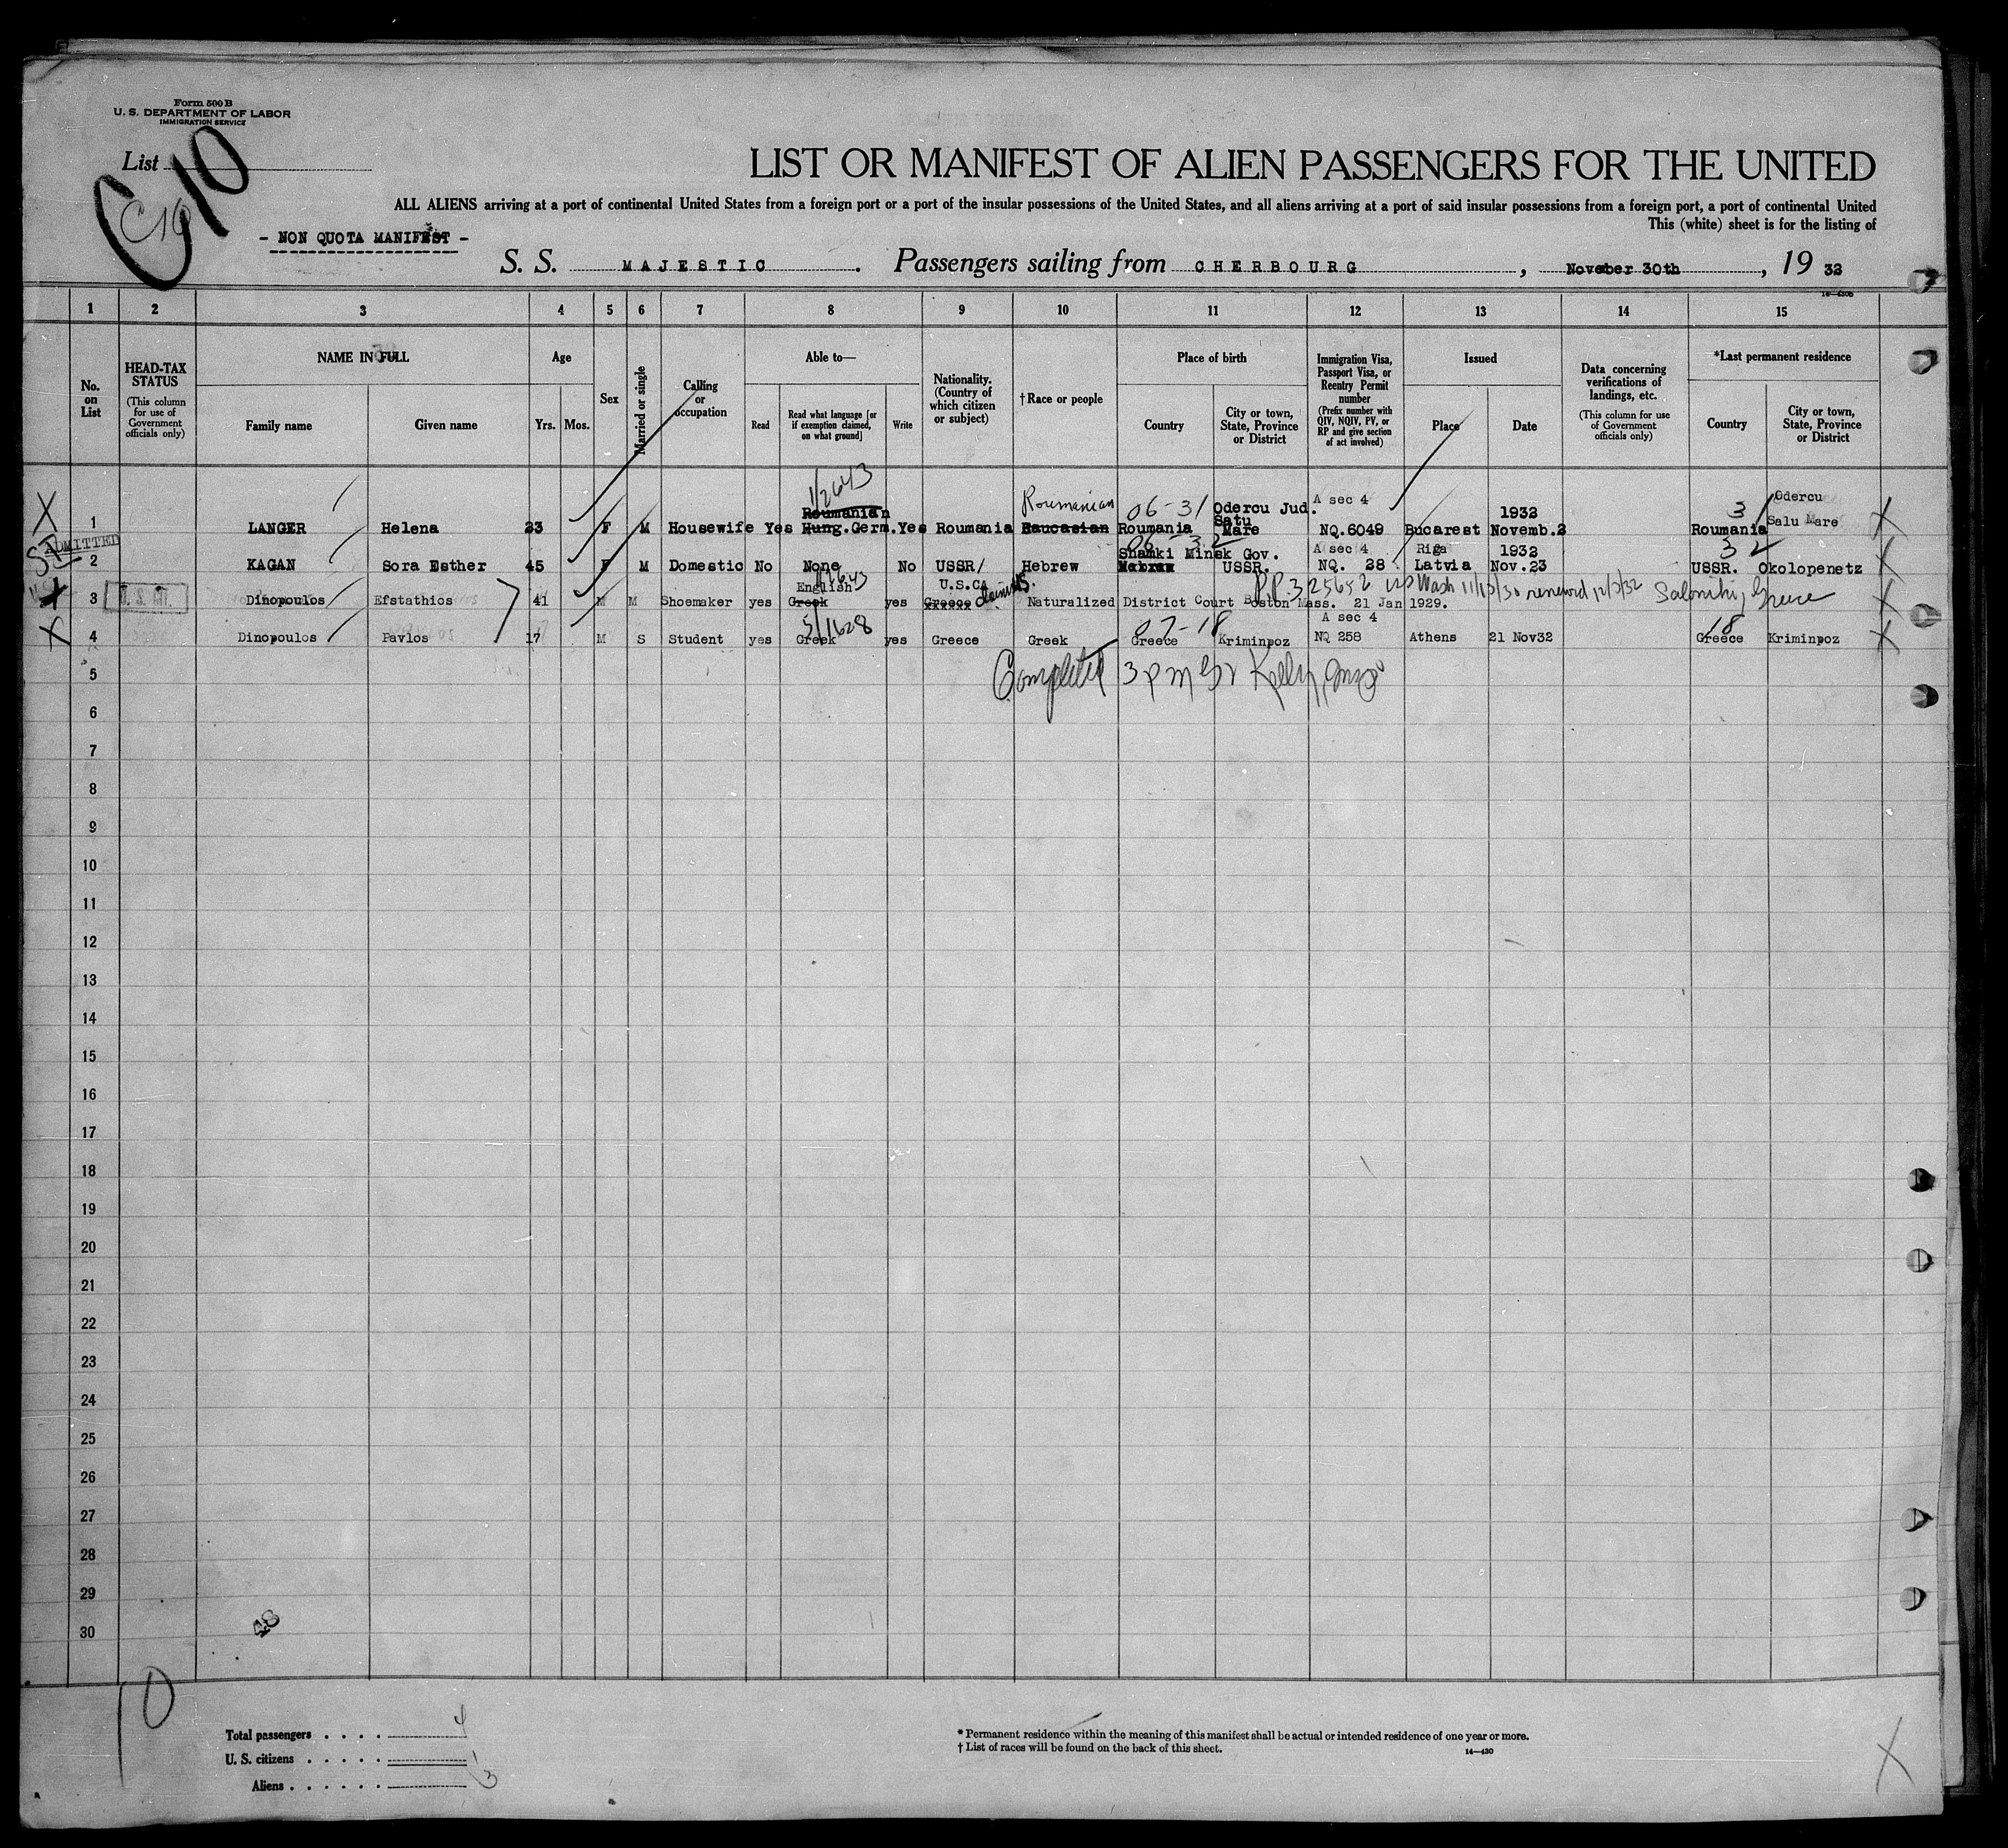 Form 500 B
U. S. DEPARTMENT OF LABOR
IMMIGRATION SERVICE
List
C10
C10
LIST OR MANIFEST OF ALIEN PASSENGERS FOR THE UNITED
ALL ALIENS arriving at a port of continental United States from a foreign port or a port of the insular possessions of the United States, and all aliens arriving at a port of said insular possessions from a foreign port, a port of continental United
This (white) sheet is for the listing of
- NON QUOTA MANIFEST -
S. S. MAJESTIC. Passengers sailing from CHERBOURG, November 30th, 19 32
1 2 3 4 5 6 7 8 9 10 11 12 13 14 15
No. on List
HEAD-TAX STATUS (This column for use of Government officials only)
NAME IN FULL
Family name Given name
Age
Yrs. Mos.
Sex
Married or single
Calling or occupation
Able to—
Read Read what language [or if exemption claimed, on what ground] Write
Nationality. (Country of which citizen or subject)
†Race or people
Place of birth
Country City or town, State, Province or District
Immigration Visa, Passport Visa, or Reentry Permit number (Prefix number with QIV, NQIV, PV, or RP and give section of act involved)
Issued
Place Date
Data concerning verifications of landings, etc. (This column for use of Government officials only)
*Last permanent residence
Country City or town, State, Province or District
12643 Roumanian 06-31 Odercu Jud. A sec 4 1932 31 Odercu
X 1 LANGER Helena 23 F M Housewife Yes Roumanian Hung.Germ. Yes Roumania Caucasian Roumania Satu Mare NQ.6049 Bucarest Novemb.2 Roumania Salu Mare X
ADMITTED
SI 06-32 A sec 4 Riga 1932 32
2 KAGAN Sora Esther 45 F M Domestic No None No USSR/ Hebrew Shanki Minsk Gov. USSR. NQ. 28 Latvia Nov.23 USSR. Okolopenetz X
X 3 U. S. Cit. Dinopoulos Efstathios 41 M M Shoemaker yes English Greek yes U.S.CA Greece Naturalized District Court Boston Mass. 21 Jan 1929. P.P. 325652 Wash 11/13/30 renewed 12/3/32 Saloniki, Greece X
51628 07-18 A sec 4 18
X 4 Dinopoulos Pavlos 17 M S Student yes Greek yes Greece Greek Greece Kriminpoz NQ 258 Athens 21 Nov32 Greece Kriminpoz X
5 Completed 3 pm Kelly
6
7
8
9
10
11
12
13
14
15
16
17
18
19
20
21
22
23
24
25
26
27
28
29
30
48
10
Total passengers . . . . 4
U. S. citizens . . . . . 1
Aliens . . . . . . 3
* Permanent residence within the meaning of this manifest shall be actual or intended residence of one year or more.
† List of races will be found on the back of this sheet.
14—430
X